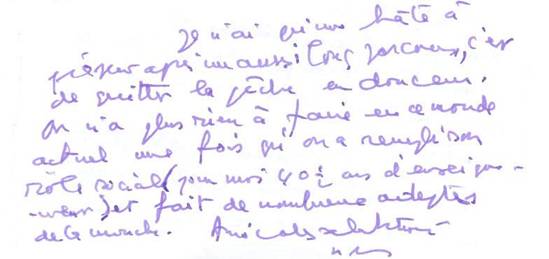 Je n'ai qu'une hâte à
présent après un aussi long parcours, c'est
de quitter la pêche en douceur.
On n'a plus rien à faire en ce monde
actuel une fois qu'on a rempli son
rôle social (pour moi 40 ½ ans d'enseigne-
-ment) et fait de nombreux adeptes
de la mouche. Amicales salutations